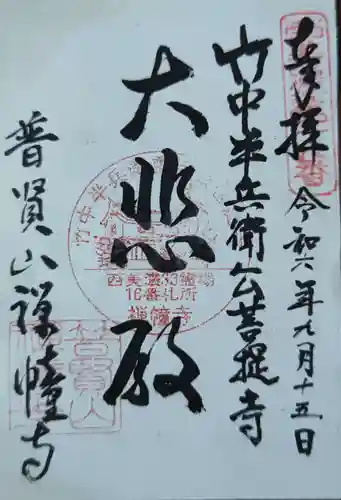 奉拝
令和六年九月十五日
竹中半兵衛公菩提寺
大悲殿
西美濃33霊場
16番札所
禅幢寺
普賢山禅幢寺